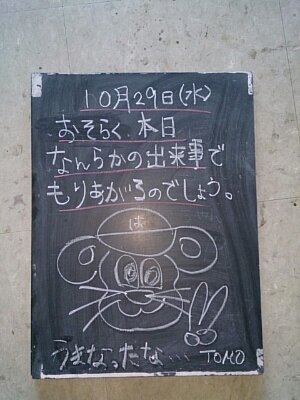 10月29日(水)
おそらく、本日
なんらかの出来事で
もりあがるのでしょう。
は
うまなったな…
TOMO